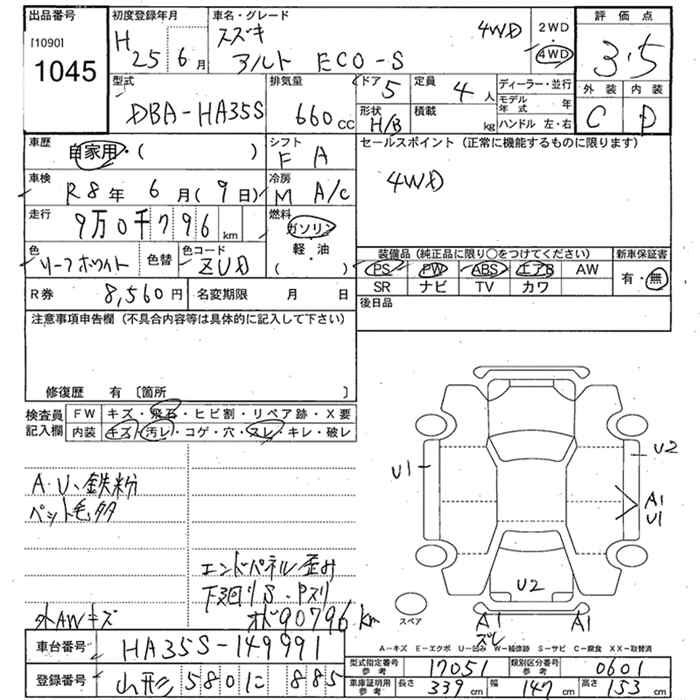 出品番号 初度登録年月 車名・グレード 評価点
[1090] 1045 H 25 6月 スズキ 4WD 2WD 4WD 3.5
アルト ECO-S
外装 内装
C D
型式 排気量 ドア 5 定員 4人 ディーラー・並行
DBA-HA35S 660cc 形状 H/B 積載 kg モデル年式 年
ハンドル 左・右
車歴 自家用・( ) シフト F A セールスポイント(正常に機能するものに限ります)
車検 R8年 6月(9日) 冷房 M A/C 4WD
走行 9万0千796km 燃料 ガソリン・軽油 ( )
色 リーフホワイト 色替 色コード ZUD
装備品(純正品に限り〇をつけてください) 新車保証書
PS PW ABS エアB AW 有・無
SR ナビ TV カワ
R券 8,560円 名変期限 月 日 後日品
注意事項申告欄(不具合内容等は具体的に記入して下さい)
修復歴 有 〔箇所 〕
検査員記入欄 FW キズ・飛石・ヒビ割・リペア跡・X要
内装 キズ・汚レ・コゲ・穴・スレ・キレ・破レ
U1
U2
A1
U1
A・U、鉄粉
ペット毛多
エンドパネル歪み
下廻りS・Pスリ
外AWキズ オド90796km
U2
スペア
A1
ズレ
A1
A-キズ E-エクボ U-凹み W-補修跡 S-サビ C-腐食 XX-取替済
車台番号 HA35S-149991
型式指定番号 参考 17051 類別区分番号 参考 0601
登録番号 山形 580に 885
車庫証明用 参考 長さ 339cm 幅 147cm 高さ 153cm